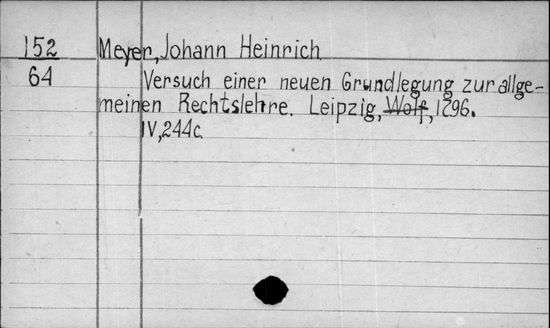 152 Meyer, Johann Heinrich.
64 Versuch einer neuen Grundlegung zur allge-
meinen Rechtslehre. Leipzig, Wolf, 1796.
IV, 244c.